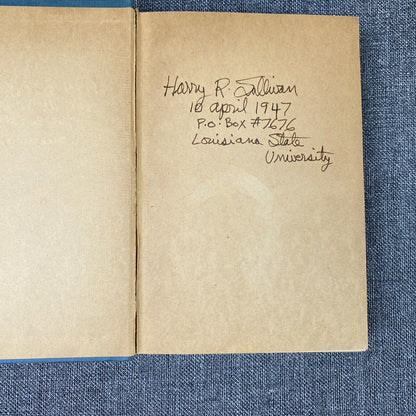 Harry R. Sullivan
10 april 1947
P.O. Box #7676
Louisiana State
University